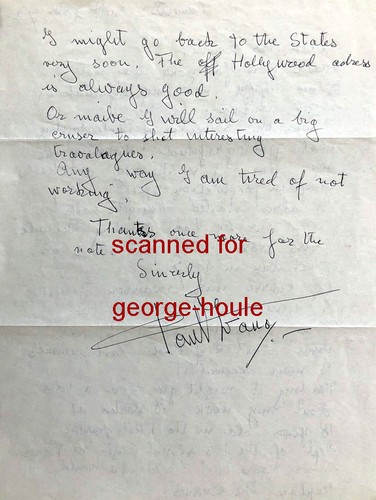 I might go back to the States
very soon. The Hollywood adress
is always good.
Or maibe I will sail on a big
cruser to shot interesting
travalagues.
Any way I am tired of not
working.
Thanks once more for the
note
scanned for
Sincerly
george-houle
Paul Ivano